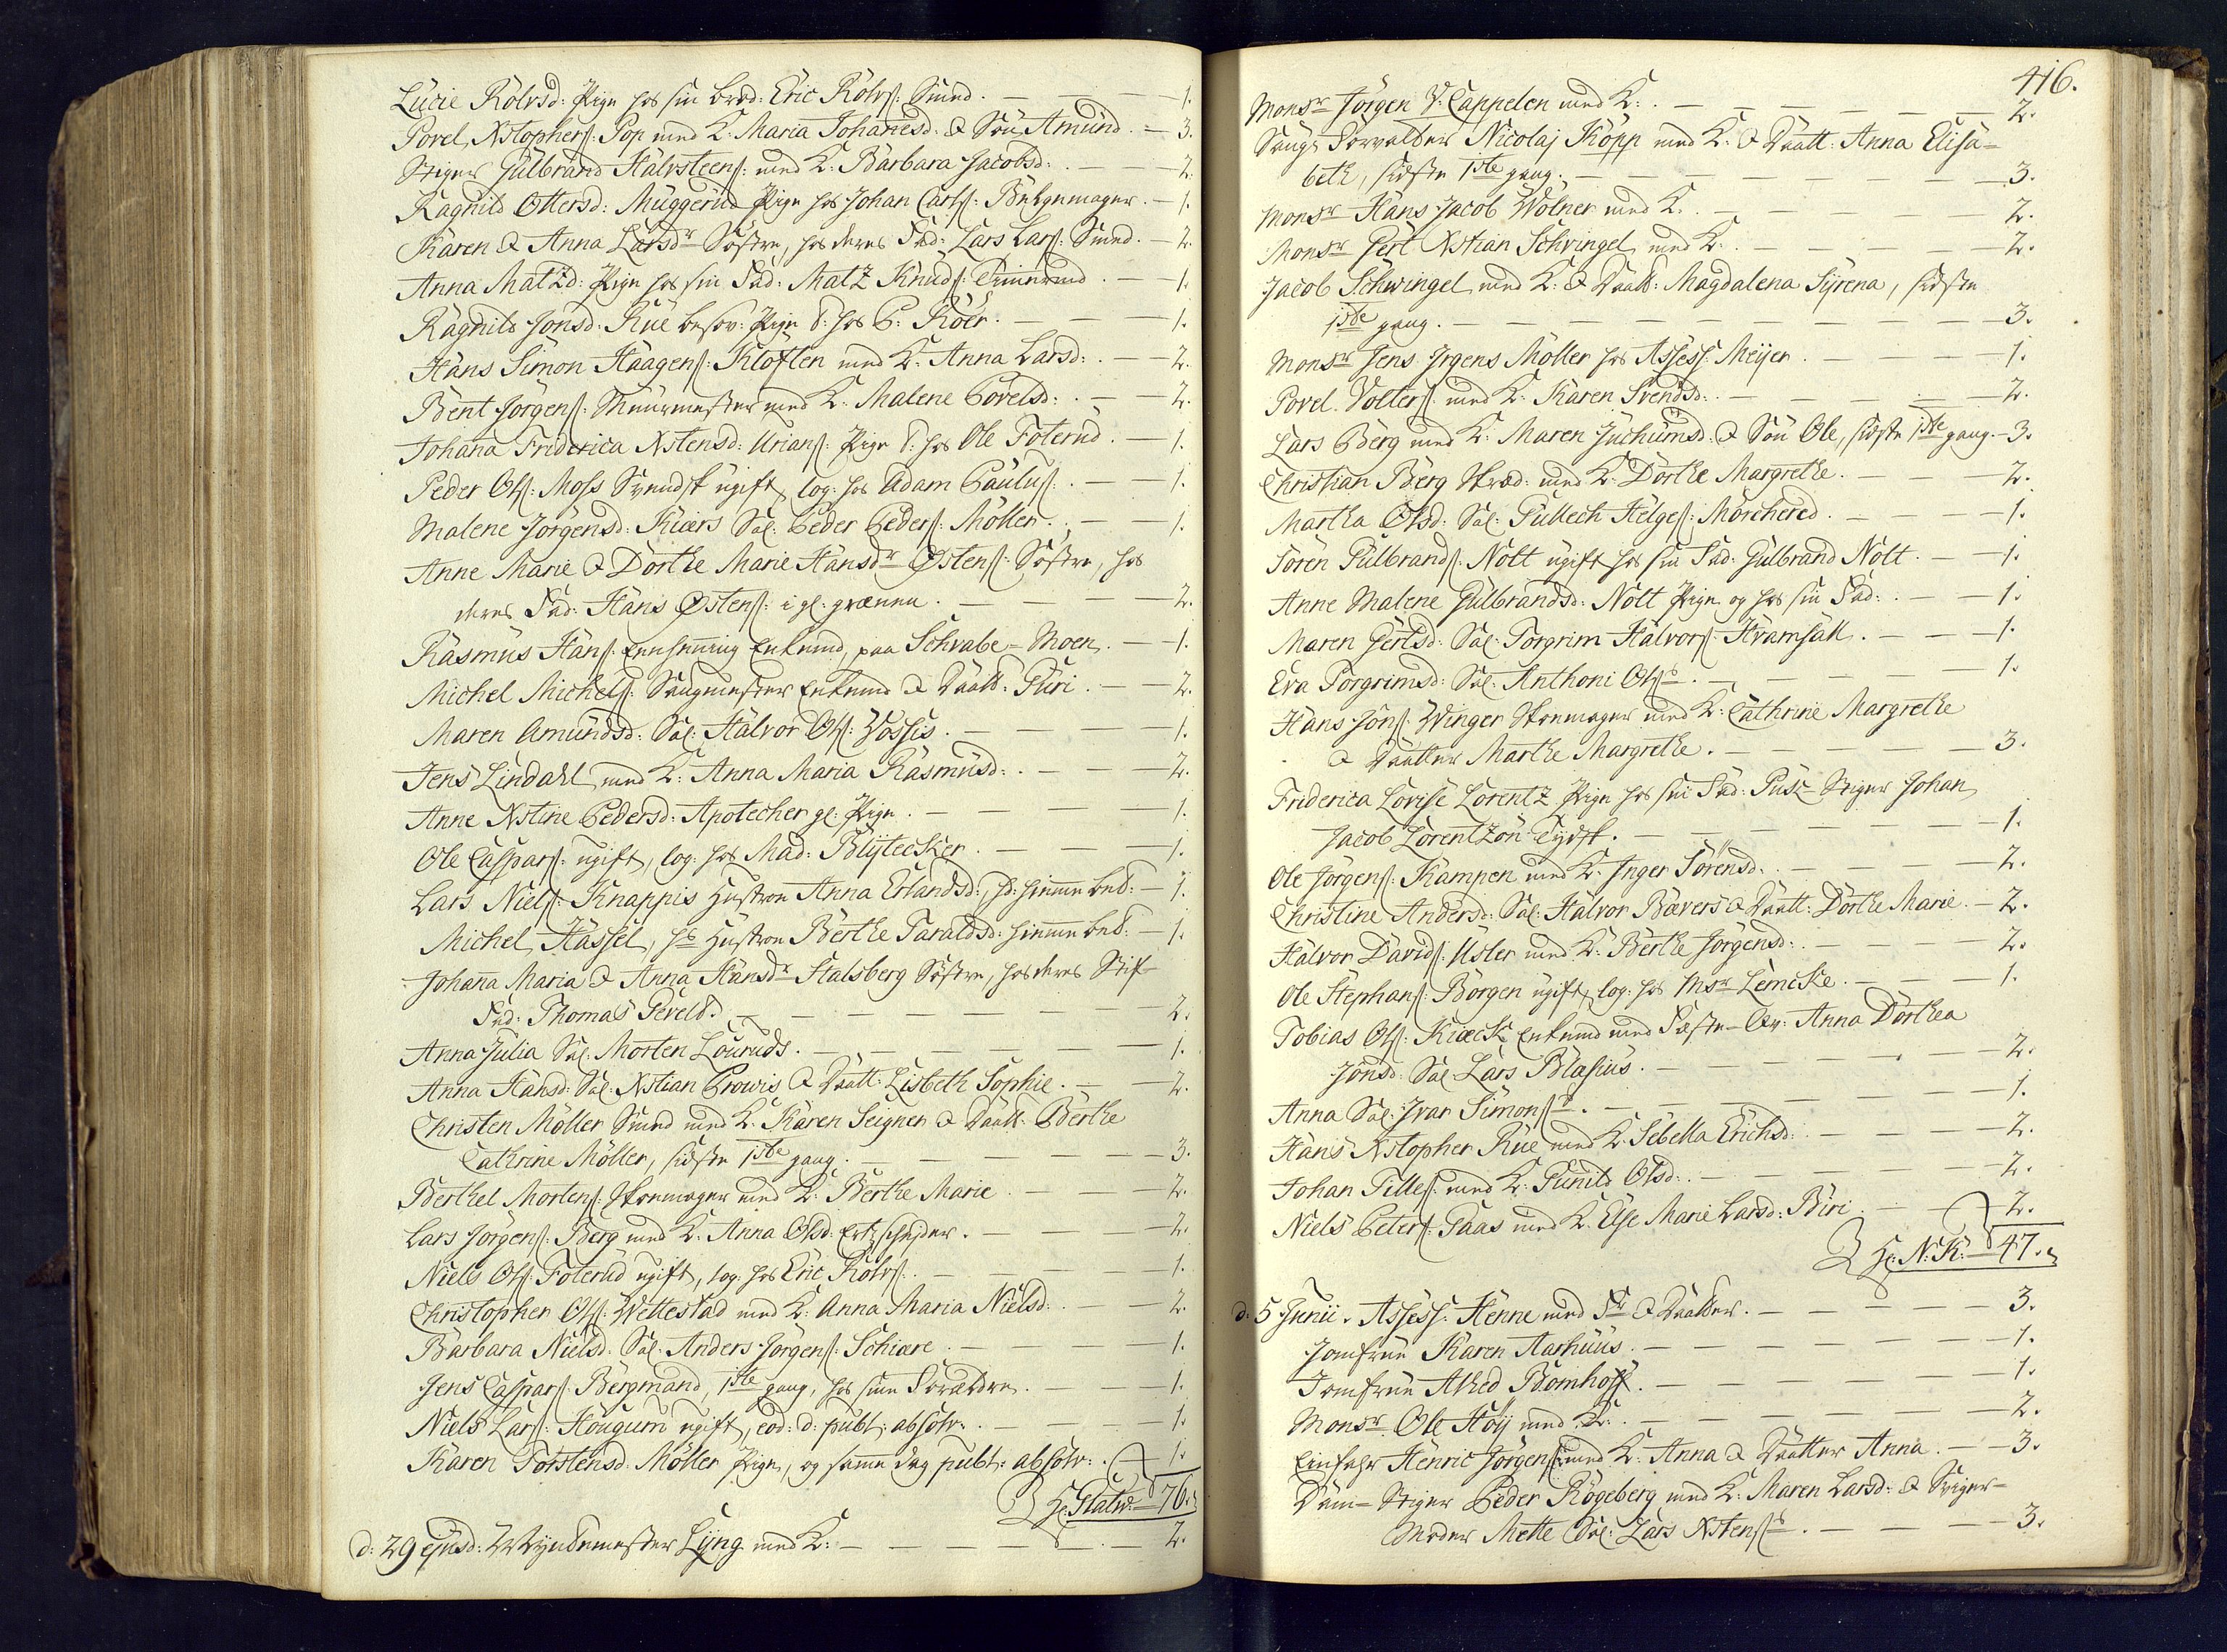 Lucie Rolvsd: Pige hos sin brod: Eric Rolvs: Smed. — 1.
Povel Xstophers: Pop med K: Maria Johannesd: & Søn Amund. — 3.
Stiger Gulbrand Halvsteens: med K: Barbara Jacobsd: — 2.
Ragnild Ottersd: Muggerud Pige hos Johan Carls: Belgemager. — 1.
Karen & Anna Larsdr Søstre, hos deres Fad: Lars Lars: Smed. — 2.
Anna Matzd: Pige hos sin Fad: Matz Knuds: Tømmermd. — 1.
Ragnild Jonsd: Rue besov: Pige d: hos P: Röer. — 1.
Hans Simon Haagens: Kloften med K: Anna Larsd: — 2.
Bent Jörgens: Muurmester med K: Malene Povelsd: — 2.
Johana Friderica Xstensd: Urians: Pige d: hos Ole Foterud. — 1.
Peder Ols: Moss Svendsk ugift, log: hos Adam Paulus: — 1.
Malene Jörgensd: Kiærs Sal: Peder Peders: Möller. — 1.
Anne Marie & Dorthe Marie Hansdr Østens: Søstre, hos
deres Fad: Hans Østens: i gl: grænen. — 2.
Rasmus Hans: Enkemd, paa Schrabe-Moen. — 1.
Michel Michels: Saugmester Enkemd & Daatt: Guri. — 2.
Maren Amundsd: Sal: Halvor Ols: Vossis. — 1.
Jens Lindahl med K: Anna Maria Rasmusd: — 2.
Anne Xstine Pedersd: Apotecher gl: Pige. — 1.
Ole Caspars: ugift, log: hos Mad: Blytecker. — 1.
Lars Niels: Knappis Hustroe Anna Erlandsd:, hd: hiemme bed: — 1.
Michel Hassel, hs Hustroe Berthe Taraldsd: hiemme bed: — 1.
Johana Maria & Anna Hansdr Halsberg Søstre, hos deres Stif-
Fad: Thomas Tevelds. — 2.
Anna Julia Sal: Morten Louruds. — 1.
Anna Hansd: Sal: Xstian Prowis & Daatt: Lisbeth Sophie. — 2.
Christen Möller Smed med K: Karen Seigner & Daatt: Berthe
Cathrine Möller, sidste 1ste gang. — 3.
Berthel Mortens: Skoemager med K: Berthe Marie — 2.
Lars Jörgens: Berg med K: Anna Olsd: Ertzscheder. — 2.
Niels Ols: Foterud ugift, log: hos Eric Rolvs: — 1.
Christopher Ols: Wettestad med K: Anna Maria Nielsd: — 2.
Barbara Nielsd: Sal: Anders Jörgens: Schiære. — 1.
Jens Caspars: Bergmand, 1ste gang, hos sine Forældre. — 1.
Niels Lars: Hougum ugift, eod: d: publ: absolv: — 1.
Karen Torstensd: Möller Pige, og samme dag publ: absolv: — 1.
Hr: Glatw: — 76.
d: 29 ejusd: Myndtmester Lyng med K: — 2.
416.
Monsr Jörgen V: Cappelen med K: — 2.
Saugs Forvalter Nicolaj Kopp med K: & Daatt: Anna Elisa-
beth, sidste 1ste gang. — 3.
Monsr Hans Jacob Wölner med K. — 2.
Monsr Gert Xstian Schvingel med K: — 2.
Jacob Schwingel med K: & Daatt: Magdalena Syrena, sidste
1ste gang. — 3.
Monsr Jens Jrgens Möller hos Assess: Meijer. — 1.
Povel Volters: med K: Karen Svendsd: — 2.
Lars Bberg med K: Maren Juchumsd: & Søn Ole, sidste 1ste gang. — 3.
Christian Berg Skræd: med K: Dorthe Margrethe. — 2.
Martha Olsd: Sal: Gullech Helges: Mörchered. — 1.
Sören Gulbrands: Nött ugift hos sin Fad: Gulbrand Nött. — 1.
Anne Malene Gulbrandsd: Nött Pige og hos sin Fad: — 1.
Maren Gertsd: Sal: Torgrim Halvors: Hvamsall. — 1.
Eva Torgrimsd: Sal: Anthoni Olss. — 1.
Hans Jöns: Winger Skoemager med K: Cathrine Margrethe
& Daatter Marthe Margrethe. — 3.
Friderica Lovise Lorentz Pige hos sin Fad: Puck Stiger Johan
Jacob Lorentzon Tydsk. — 1.
Ole Jörgens: Kampen med K: Inger Sörensd: — 2.
Christine Andersd: Sal: Halvor Bævers & Daatt: Dorthe Marie. — 2.
Halvor Davids: Usler med K: Berthe Jörgensd: — 2.
Ole Stephans: Börgen ugift, log: hos Msr Lemcke. — 1.
Tobias Ols: Kiæck Enkemd med Fæste-Qv: Anna Dorthea
Jonsd: Sal: Lars Blasius. — 2.
Anna Sal: Ivar Simonss. — 1.
Hans Xstopher Rue med K: Sebella Erichsd: — 2.
Johan Tilles: med K: Gunild Olsd: — 2.
Niels Peters: Faas med K: Else Marie Larsd: Buri. — 2.
Hr: N: K: — 47.
d: 5 Junii. Assess: Henne med Fr & Daatter. — 3.
Jomfrue Karen Aarhuus. — 1.
Jomfrue Alhed Bomhoff. — 1.
Monsr Ole Höij med K: — 2.
Einfahr Henric Jörgens: med K: Anna & Daatter Anna. — 3.
Dam-Stiger Peder Rögeberg med K: Maren Larsd: & Sviger-
Moder Mette Sal: Lars Xstenss. — 3.